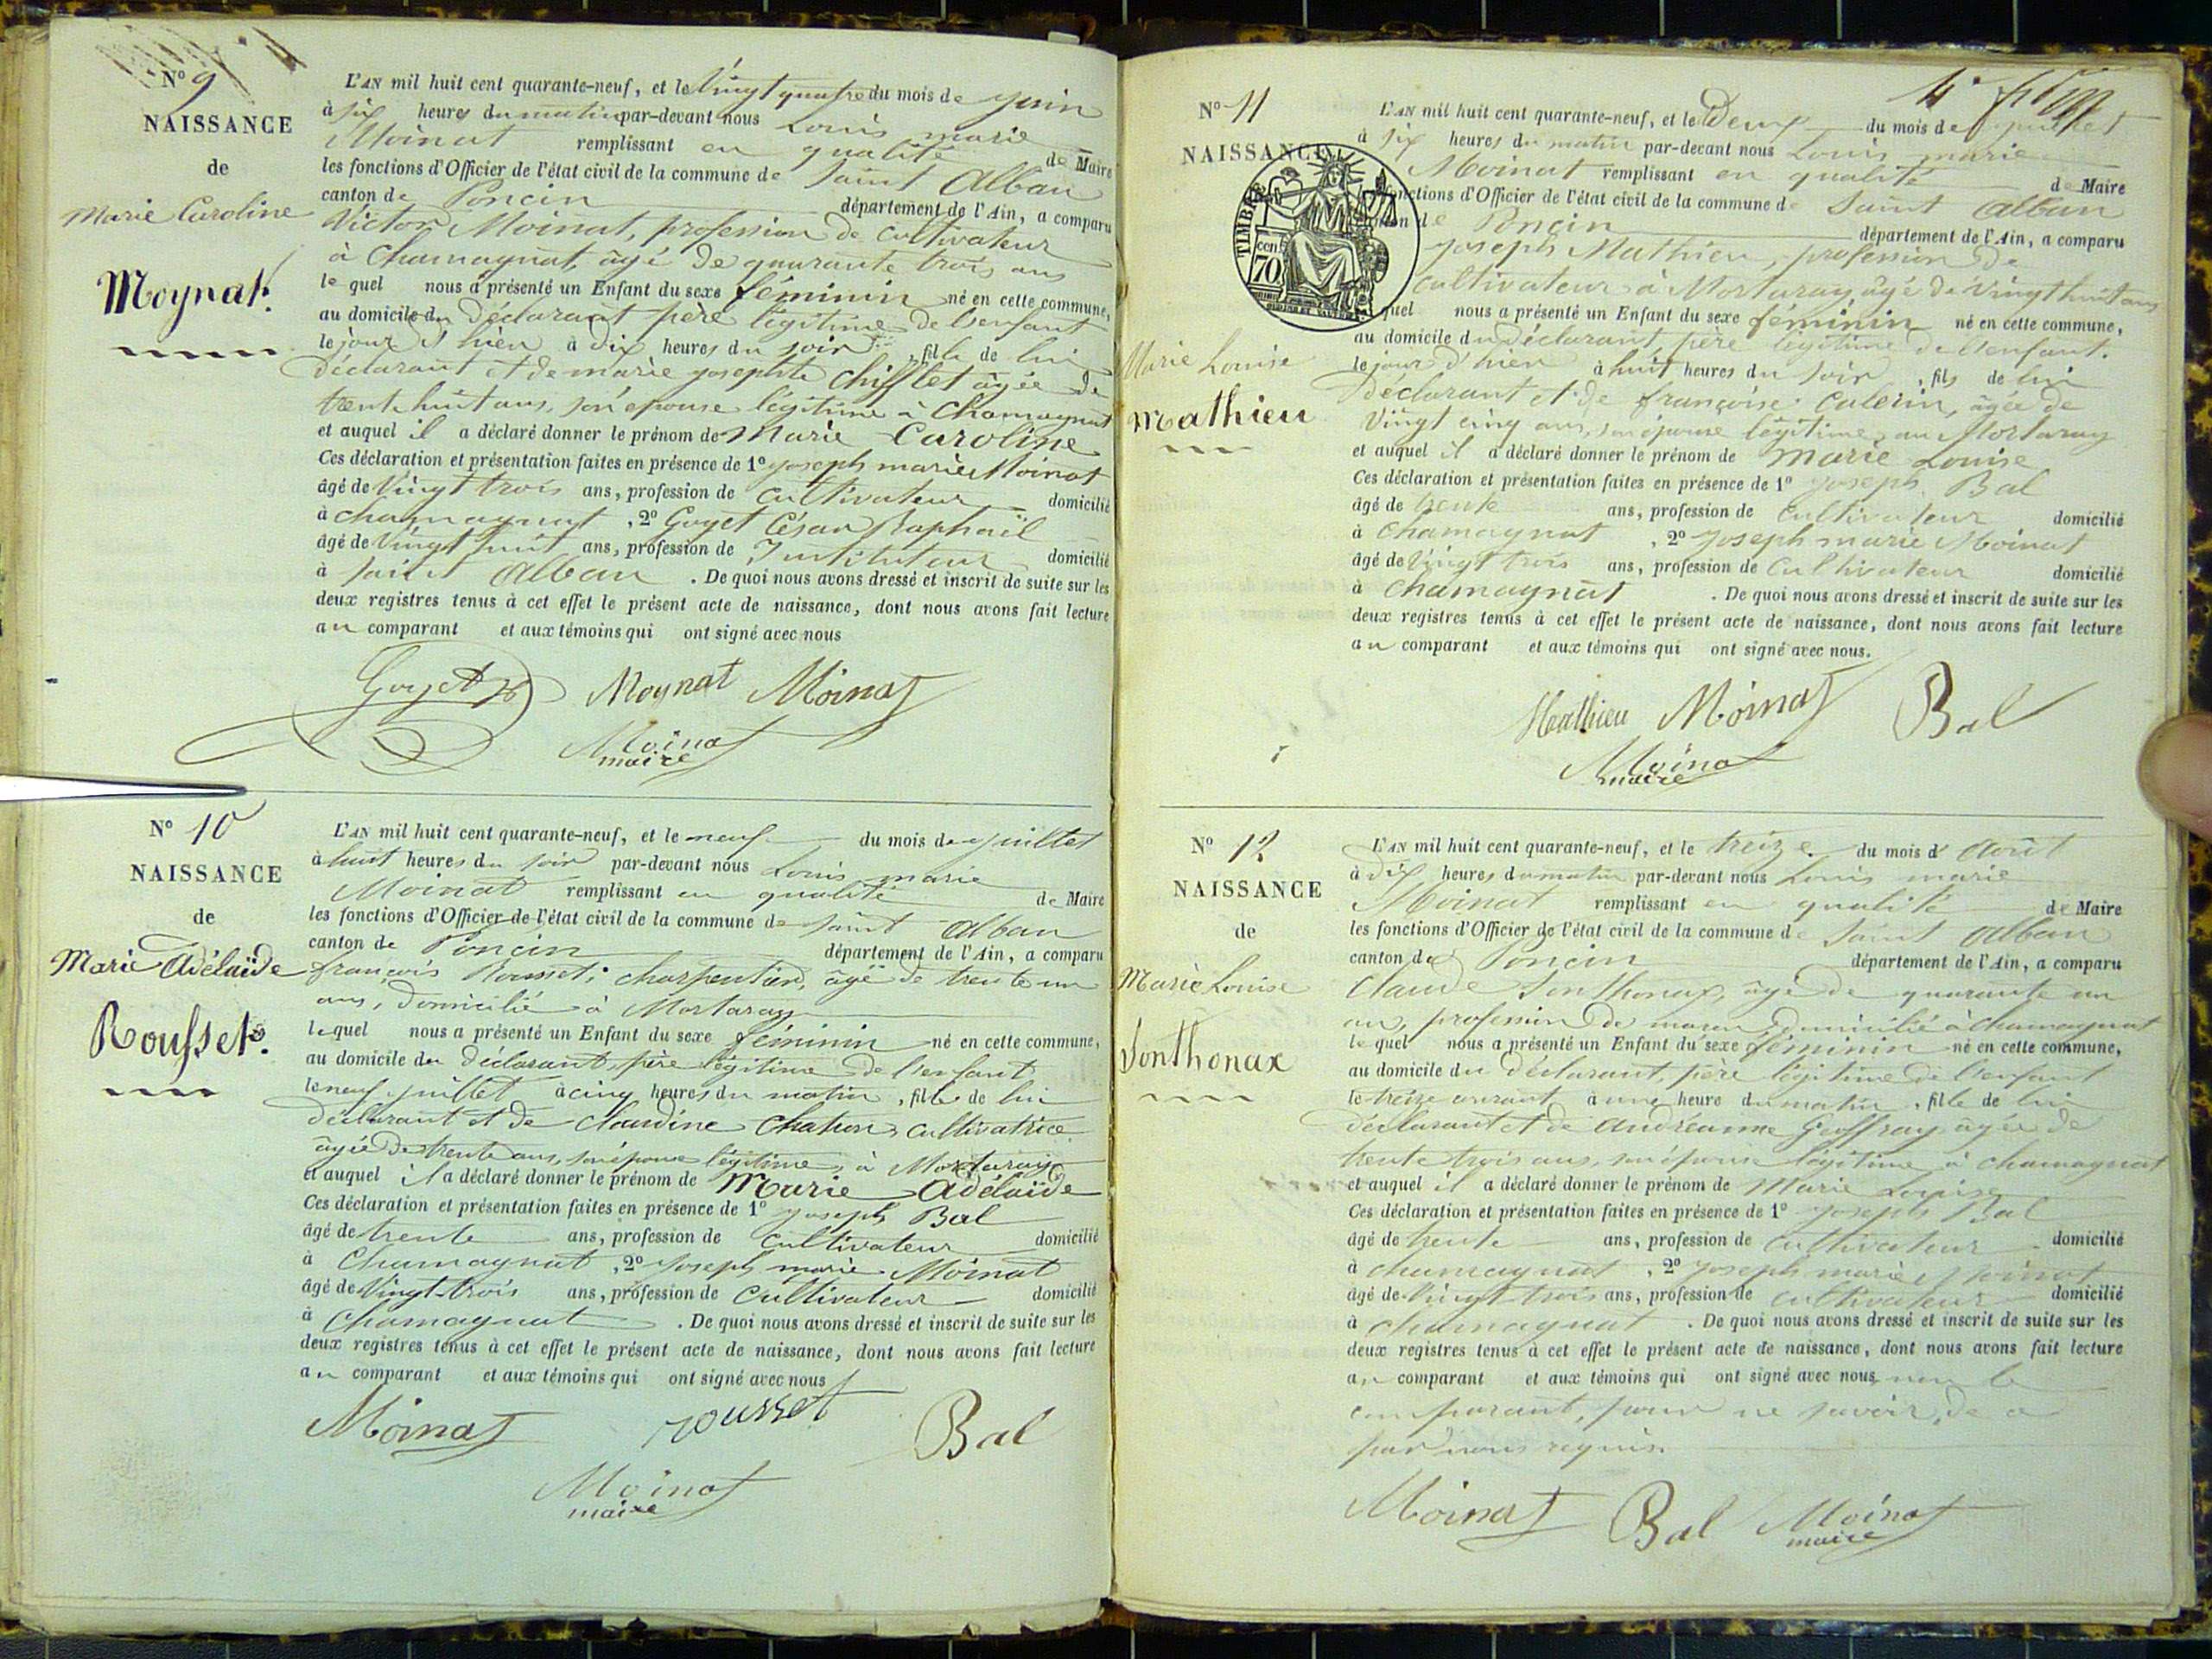 N° 9
NAISSANCE
de
Marie Caroline
Moynat.
L'AN mil huit cent quarante-neuf, et le Vingt quatre du mois de juin
à six heures du matin par-devant nous Louis marie
Moinat remplissant en qualité de Maire
les fonctions d'Officier de l'état civil de la commune de Saint Alban
canton de Poncin département de l'Ain, a comparu
Victor Moinat, profession de cultivateur
à Chamagnat, âgé de quarante trois ans
lequel nous a présenté un Enfant du sexe féminin né en cette commune,
au domicile du Déclarant père légitime de l'enfant
le jour d'hier à Dix heures du soir, fille de lui
déclarant et de marie josephte Chifflet âgée de
trente huit ans, son épouse légitime à Chamagnat
et auquel il a déclaré donner le prénom de Marie Caroline
Ces déclaration et présentation faites en présence de 1° joseph marie Moinat
âgé de Vingt trois ans, profession de Cultivateur domicilié
à chamagnat, 2° Goyet César Raphaël
âgé de Vingt huit ans, profession de Instituteur domicilié
à saint Alban. De quoi nous avons dressé et inscrit de suite sur les
deux registres tenus à cet effet le présent acte de naissance, dont nous avons fait lecture
au comparant et aux témoins qui ont signé avec nous
Goyet Moynat Moinat
Moinat
maire
N° 10
NAISSANCE
de
Marie Adélaïde
Rousset.
L'AN mil huit cent quarante-neuf, et le neuf du mois de juillet
à huit heures du soir par-devant nous Louis marie
Moinat remplissant en qualité de Maire
les fonctions d'Officier de l'état civil de la commune de saint Alban
canton de Poncin département de l'Ain, a comparu
françois Rousset, charpentier, âgé de trente un
ans, domicilié à Mortaray
lequel nous a présenté un Enfant du sexe féminin né en cette commune,
au domicile du déclarant, père légitime de l'enfant
le neuf juillet à cinq heures du matin, fille de lui
déclarant et de claudine Chaton, cultivatrice
âgée de trente ans, son épouse légitime, à Mortaray
et auquel il a déclaré donner le prénom de Marie Adélaïde
Ces déclaration et présentation faites en présence de 1° joseph Bal
âgé de trente ans, profession de Cultivateur domicilié
à Chamagnat, 2° Joseph marie Moinat
âgé de Vingt-trois ans, profession de Cultivateur domicilié
à Chamagnat. De quoi nous avons dressé et inscrit de suite sur les
deux registres tenus à cet effet le présent acte de naissance, dont nous avons fait lecture
au comparant et aux témoins qui ont signé avec nous
Moinat rousset Bal
Moinat
maire
N° 11
NAISSANCE
TIMBRE
70
Marie Louise
Mathieu
L'AN mil huit cent quarante-neuf, et le Deux du mois de juillet
à six heures du matin par-devant nous Louis marie
Moinat remplissant en qualité de Maire
fonctions d'Officier de l'état civil de la commune de Saint Alban
de Poncin département de l'Ain, a comparu
joseph Mathieu, profession de
cultivateur à Mortaray âgé de Vingt huit ans
quel nous a présenté un Enfant du sexe féminin né en cette commune,
au domicile du déclarant, père légitime de l'enfant.
le jour d'hier à huit heures du soir, fils de lui
Déclarant et de françoise âgée de
Vingt cinq ans, son épouse légitime, au Mortaray
et auquel il a déclaré donner le prénom de Marie Louise
Ces déclaration et présentation faites en présence de 1° joseph Bal
âgé de trente ans, profession de Cultivateur domicilié
à Chamagnat, 2° joseph marie Moinat
âgé de Vingt trois ans, profession de Cultivateur domicilié
à Chamagnat. De quoi nous avons dressé et inscrit de suite sur les
deux registres tenus à cet effet le présent acte de naissance, dont nous avons fait lecture
au comparant et aux témoins qui ont signé avec nous.
Mathieu Moinat Bal
Moinat
maire
N° 12
NAISSANCE
de
Marie Louise
Sonthonax
L'AN mil huit cent quarante-neuf, et le treize du mois d' Août
à dix heures du matin par-devant nous Louis marie
Moinat remplissant en qualité de Maire
les fonctions d'Officier de l'état civil de la commune de Saint Alban
canton de Poncin département de l'Ain, a comparu
Claude Sonthonax, âgé de quarante un
an, profession de maçon, domicilié à chamagnat
lequel nous a présenté un Enfant du sexe féminin né en cette commune,
au domicile du déclarant, père légitime de l'enfant
le treize courant à une heure du matin, fille de lui
déclarant et de andréanne Geoffray âgée de
trente trois ans, son épouse légitime, à chamagnat
et auquel il a déclaré donner le prénom de Marie Louise
Ces déclaration et présentation faites en présence de 1° joseph Bal
âgé de trente ans, profession de Cultivateur domicilié
à chamagnat, 2° joseph marie Moinat
âgé de Vingt-trois ans, profession de cultivateur domicilié
à chamagnat. De quoi nous avons dressé et inscrit de suite sur les
deux registres tenus à cet effet le présent acte de naissance, dont nous avons fait lecture
au comparant et aux témoins qui ont signé avec nous, non le
comparant, pour ne savoir, de ce
par nous requis.
Moinat Bal Moinat
maire